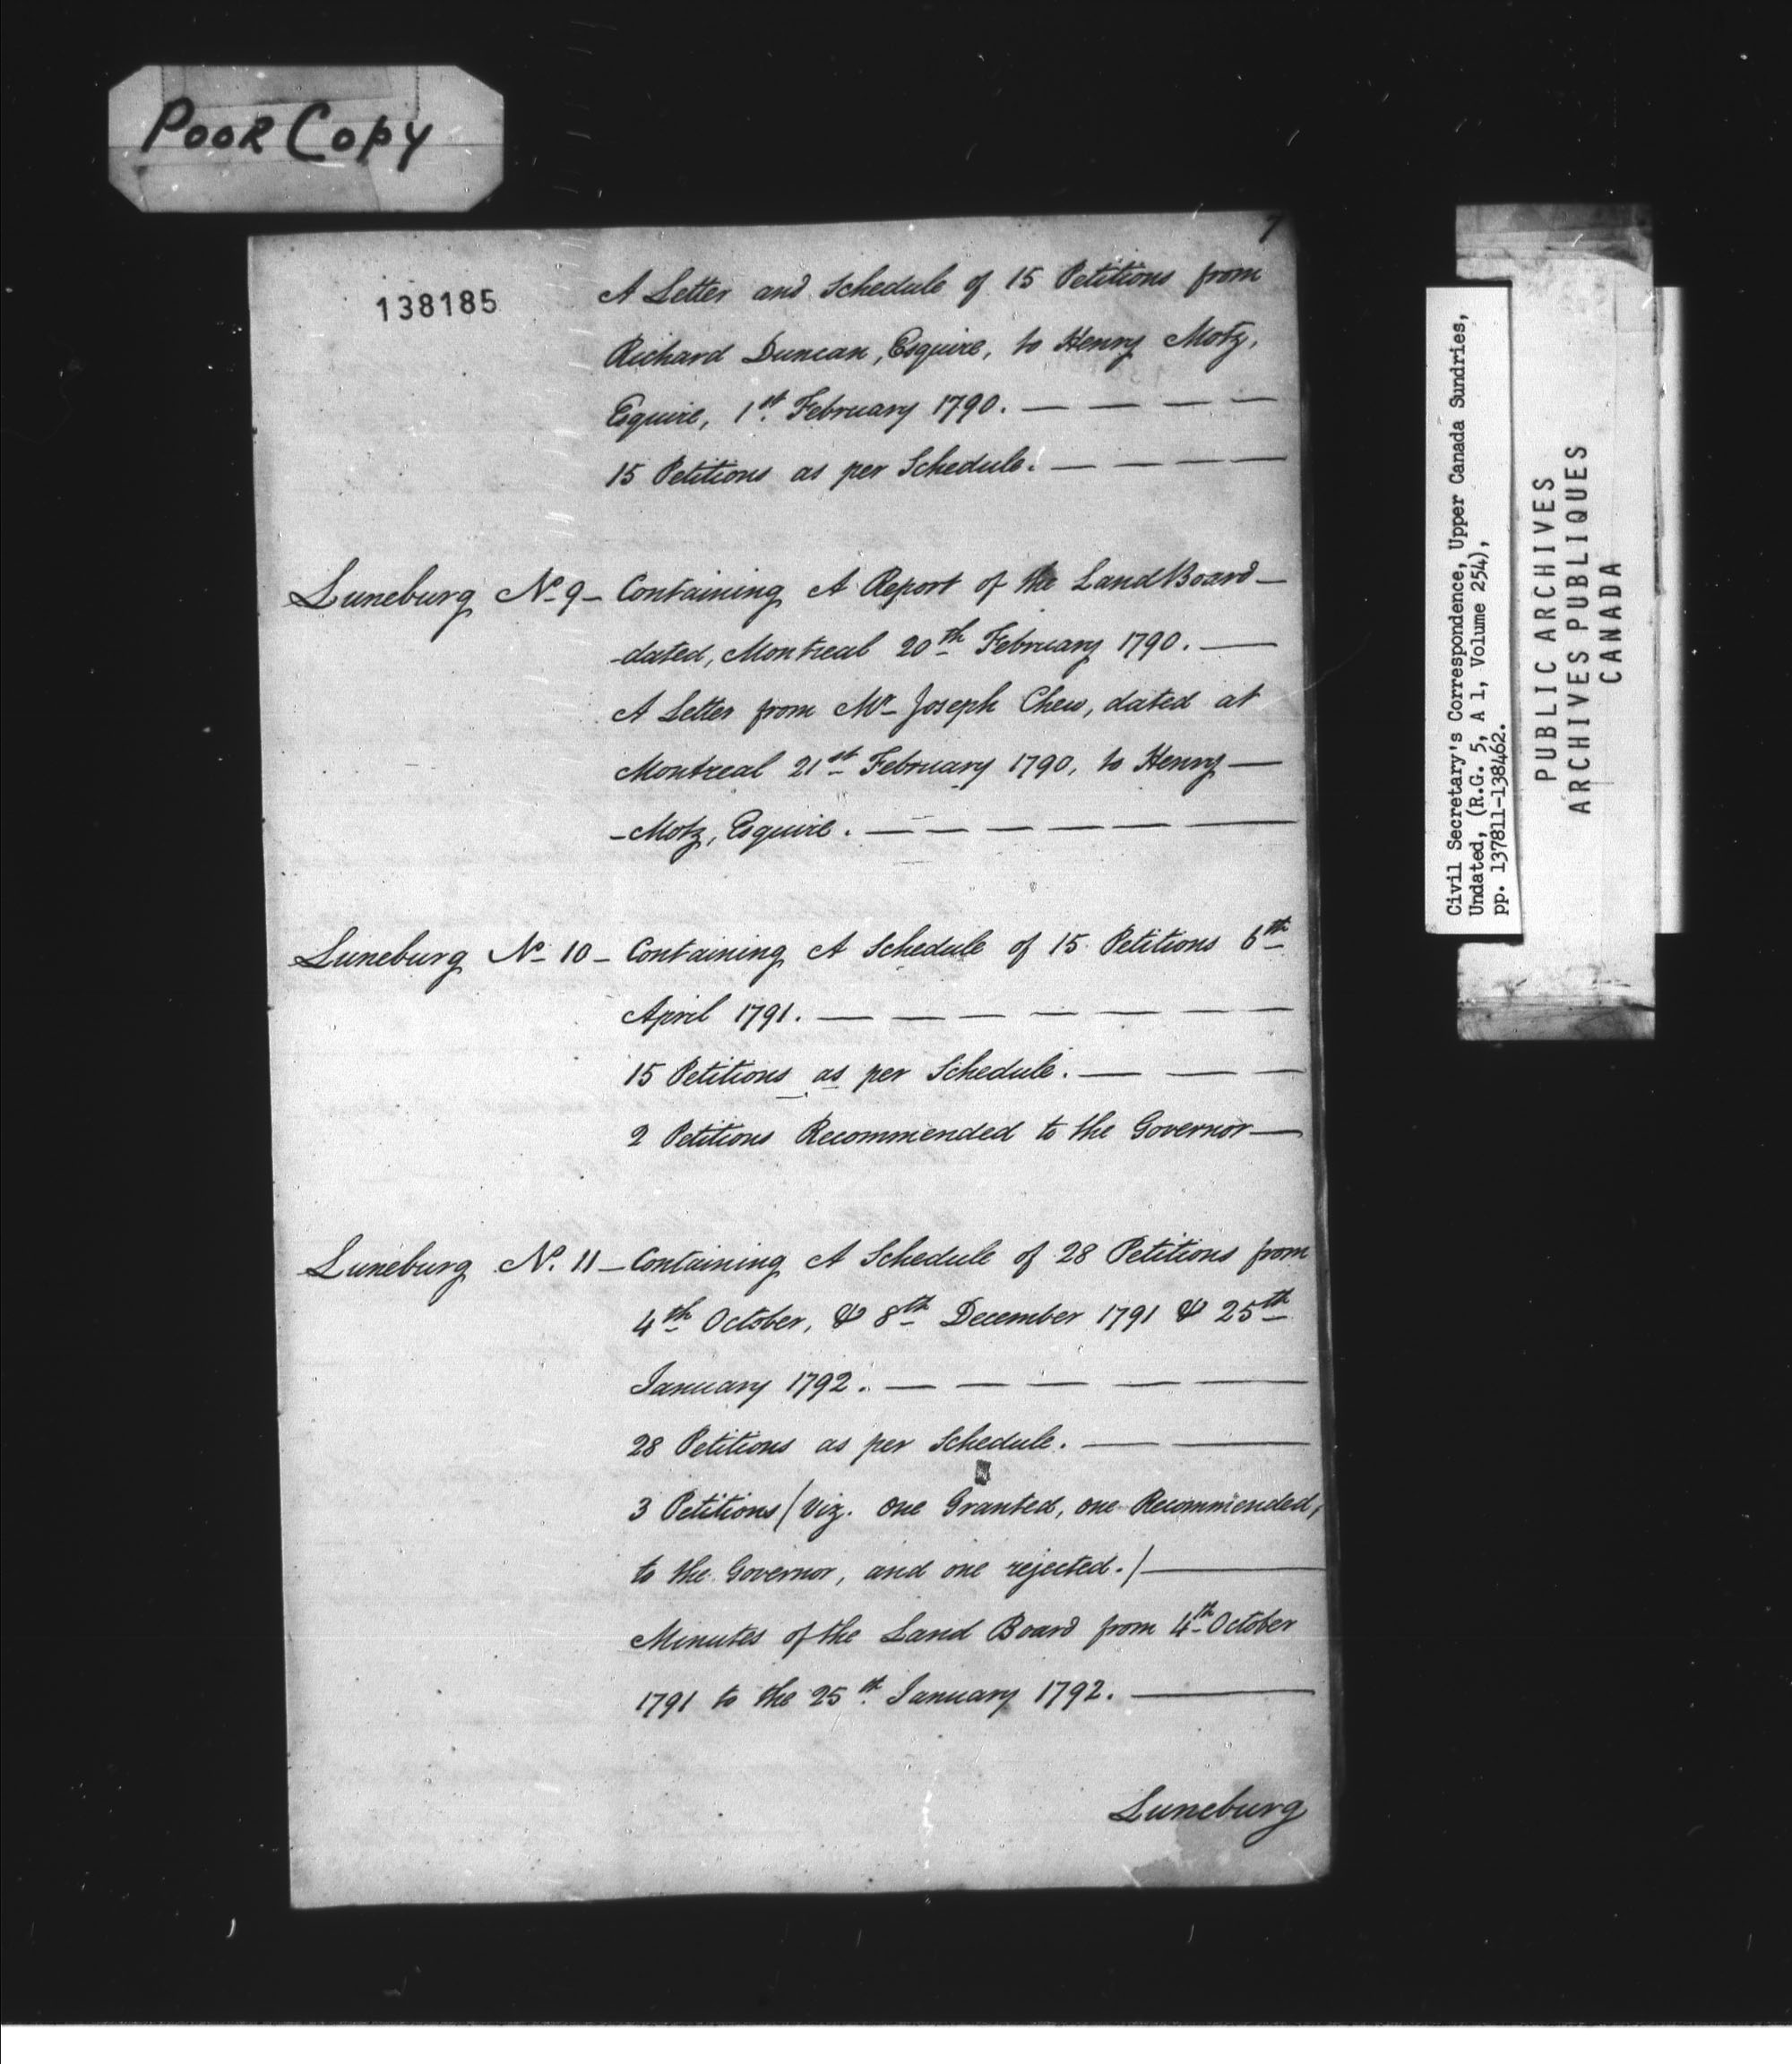 Poor Copy
7
138185
A Letter and Schedule of 15 Petitions from
Richard Duncan, Esquire, to Henry Motz,
Esquire, 1st February 1790. — — — —
15 Petitions as per Schedule. — — — —
Luneburg No 9 — Containing A Report of the Land Board —
-dated, Montreal 20th February 1790. —
A Letter from Mr Joseph Chew, dated at
Montreal 21st February 1790, to Henry —
-Motz, Esquire. — — — — — —
Luneburg No 10 — Containing A Schedule of 15 Petitions 6th
April 1791. — — — — — — —
15 Petitions as per Schedule. — — —
2 Petitions Recommended to the Governor —
Luneburg N. 11 — Containing A Schedule of 28 Petitions from
4th October, & 8th December 1791 & 25th
January 1792. — — — — —
28 Petitions as per Schedule. — —
3 Petitions / Viz. one Granted, one Recommended,
to the Governor, and one rejected. / —
Minutes of the Land Board from 4th October
1791 to the 25th January 1792. —
Luneburg
Civil Secretary's Correspondence, Upper Canada Sundries,
Undated, (R.G. 5, A 1, Volume 254),
pp. 137811-138462.
PUBLIC ARCHIVES
ARCHIVES PUBLIQUES
CANADA